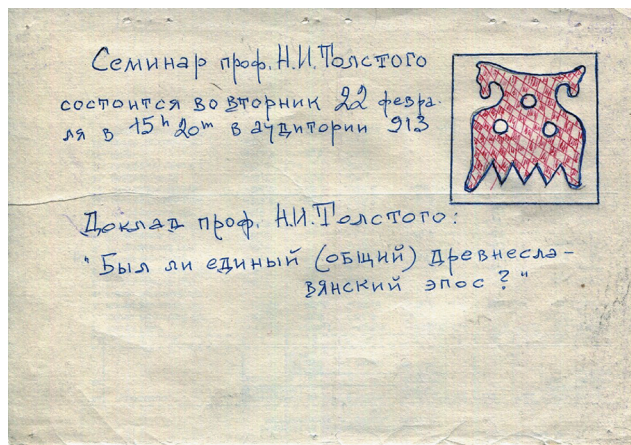 Семинар проф. Н.И.Толстого
состоится во вторник 22 февра-
ля в 15ʰ 20ᵐ в аудитории 913
Доклад проф. Н.И.Толстого:
"Был ли единый (общий) древнесла-
вянский эпос?"